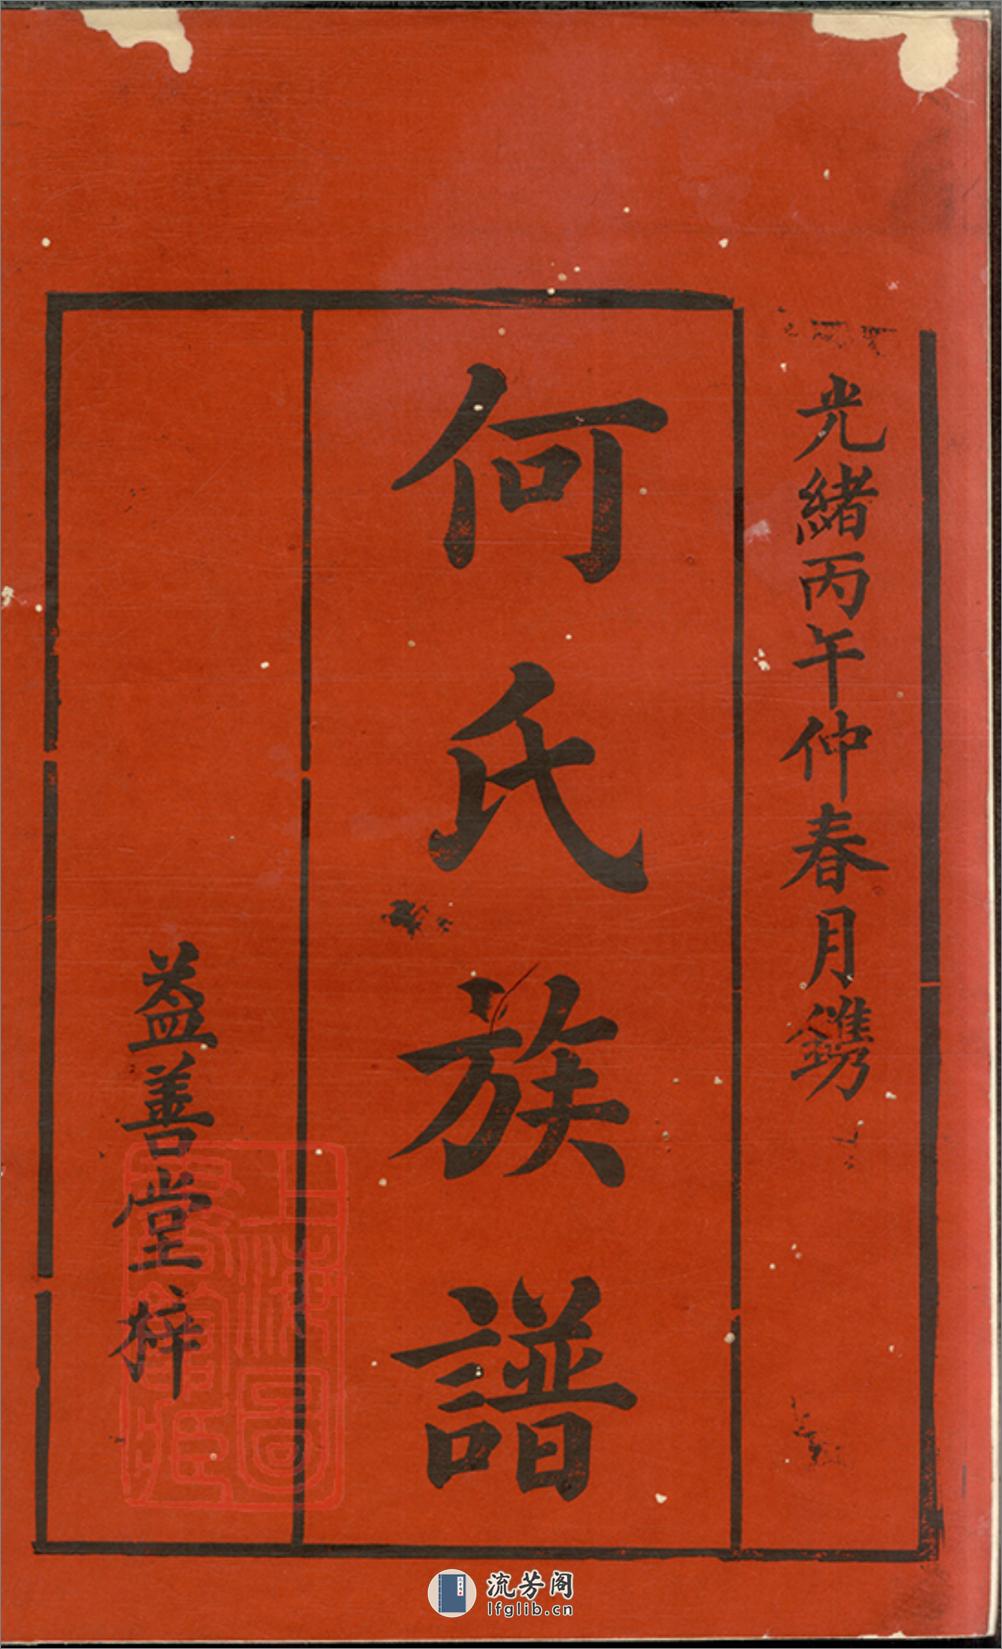 光緒丙午仲春月鐫
何氏族譜
益善堂梓
上海圖書館藏
流芳阁
lfglib.cn